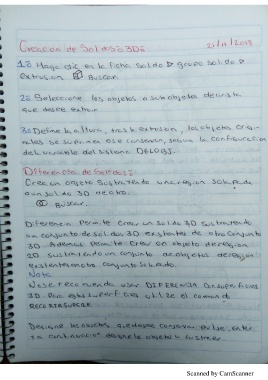 Creación de Solidos 3D: 21/11/2018
1.º Haga clic en la ficha Solido ▷ grupo Solido ▷
Extrusion. Buscar.
2º Seleccione los objetos o subobjetos de
que desee
3º Define la altura, tras la extrusion, los objetos
se suprimen o se conservan, segun la configuracion
del variable del sistema DELOBJ.
Diferencia de Solidos:
Crea un objeto sustrayendo una region
o un solido 3D de otro.
Buscar.
Diferencia Permite Crear un Solido 3D sustrayendo
un conjunto de solidos 3D existentes de otro conjunto
3D. Ademas Permite Crear un objeto de region
2D sustrayendo un conjunto de objetos de region
existentes de otro conjunto
Nota
No se recomienda usar DIFERENCIA con superficies
3D. Para utilice el comando
RECORTASUPERF
Designe los objetos que desee conservar
a continuacion designe los objetos a sustraer
Scanned by CamScanner